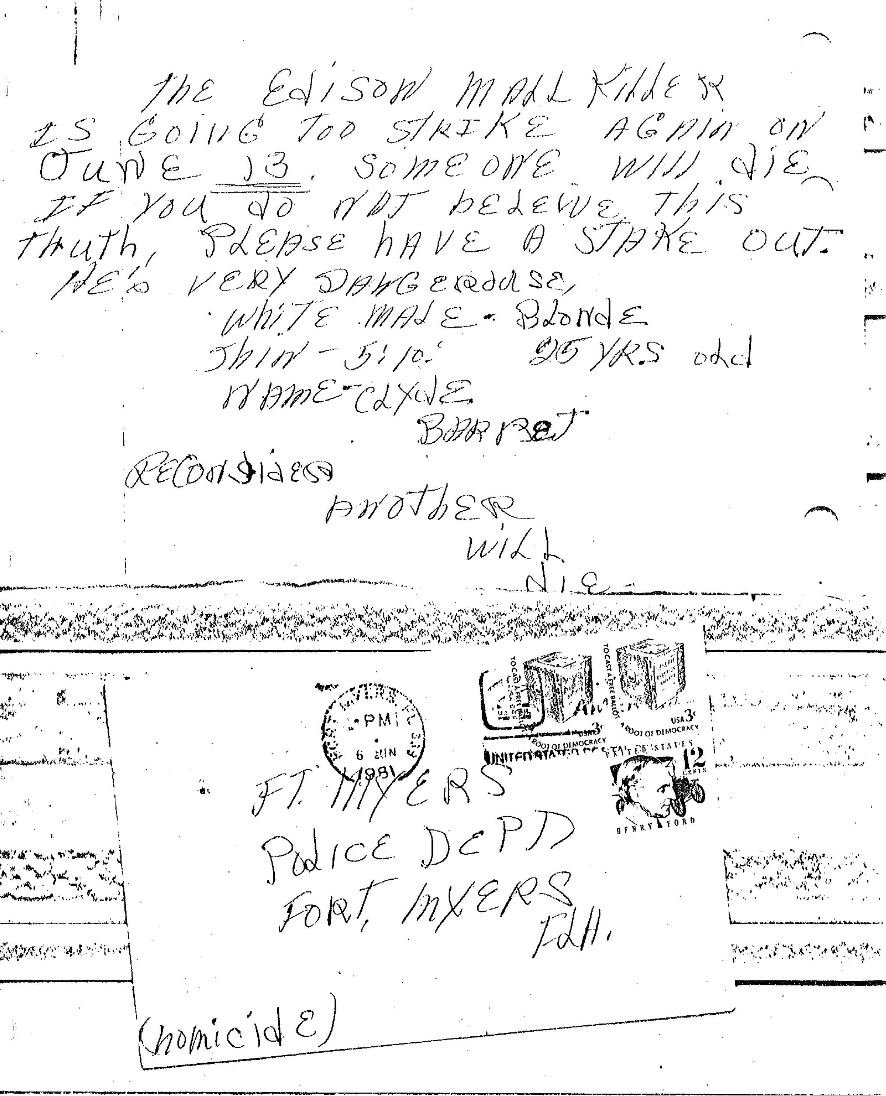 THE EDISON MALL KILLER
IS GOING TOO STRIKE AGAIN ON
JUNE 13. SOMEONE WILL DIE
IF YOU DO NOT BELEIVE THIS
TRUTH, PLEASE HAVE A STAKE OUT.
HE'S VERY DANGEROUSE,
WHITE MALE - BLONDE
THIN - 5'10" 25 YRS OLD
NAME - CLYDE
BARRET
RECONSIDER
ANOTHER
WILL
DIE -
FORT MYERS, FL 339
PM
6 JUN
1981
TO CAST A FREE BALLOT
TO CAST A FREE BALLOT
USA 3c
USA 3c
A ROOT OF DEMOCRACY
A ROOT OF DEMOCRACY
UNITED STATES
12
CENTS
HENRY FORD
FT. MYERS
POLICE DEPT
FORT, MYERS
FLA.
(homicide)